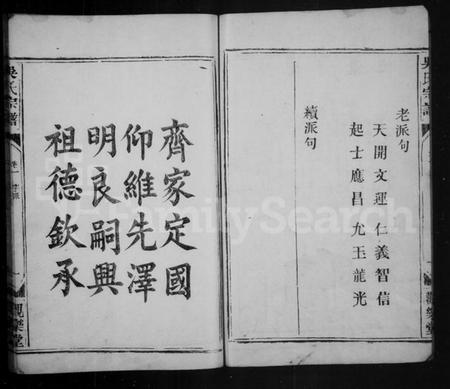 吳氏宗譜
老派句
天開文運仁義智信
起士應昌允玉龍光
續派句
觀樂堂
齊家定國
仰維先澤
明良嗣興
祖德欽承
吳氏宗譜
卷一
觀樂堂
FamilySearch